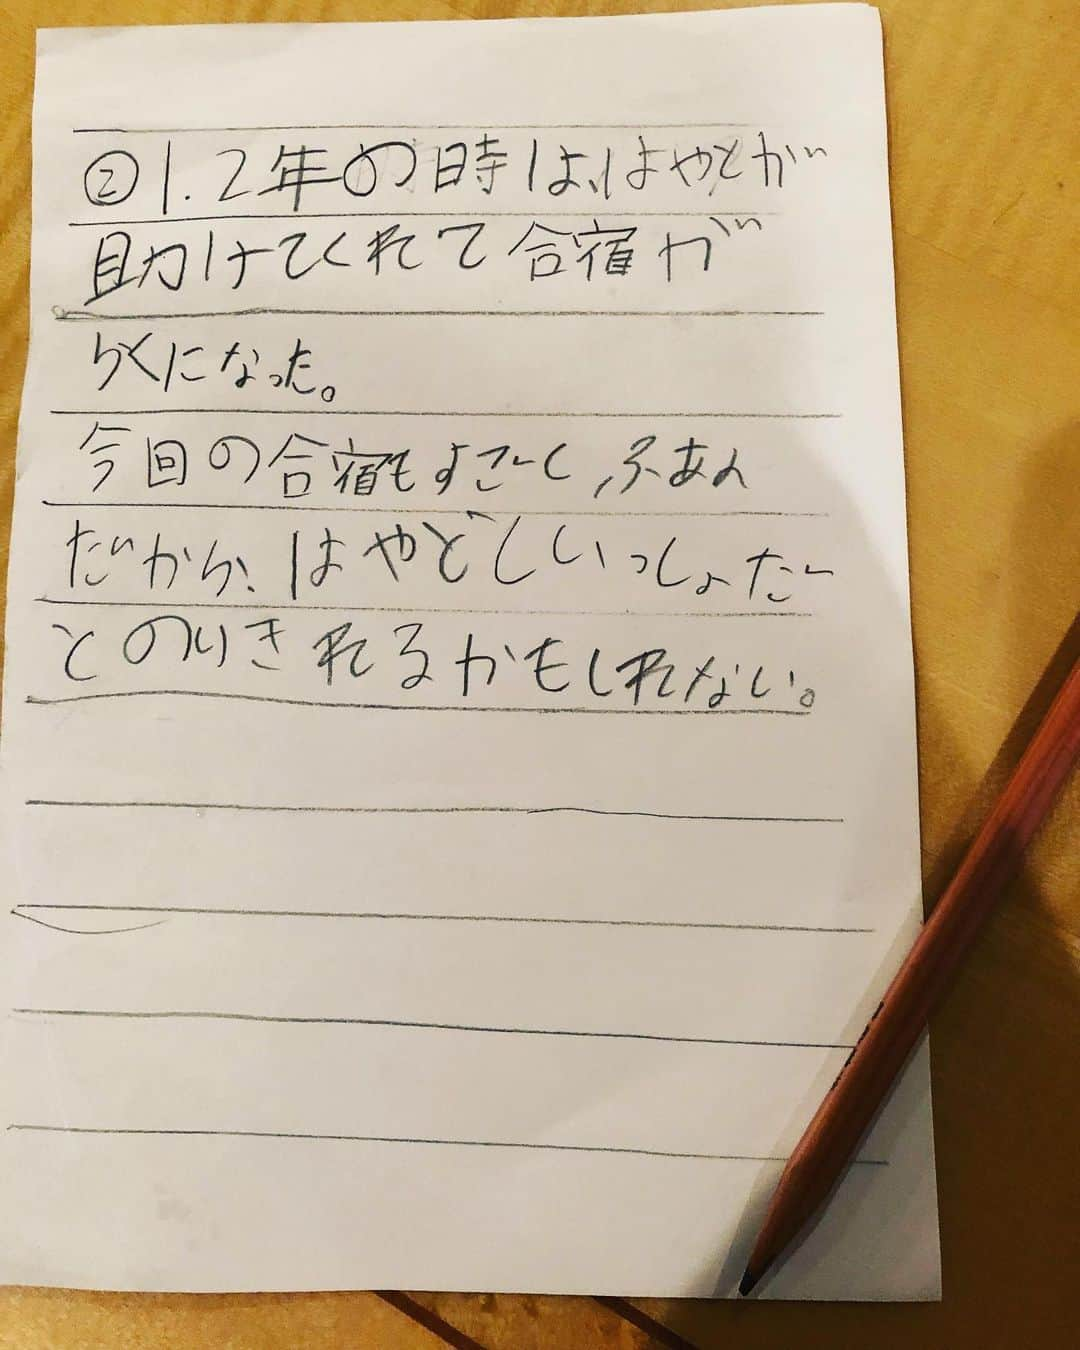 ②1.2年の時は、はやとが
助けてくれて合宿が
らくになった。
今回の合宿もすごくふあん
だから、はやとどいっしょだ
とのりきれるかもしれない。